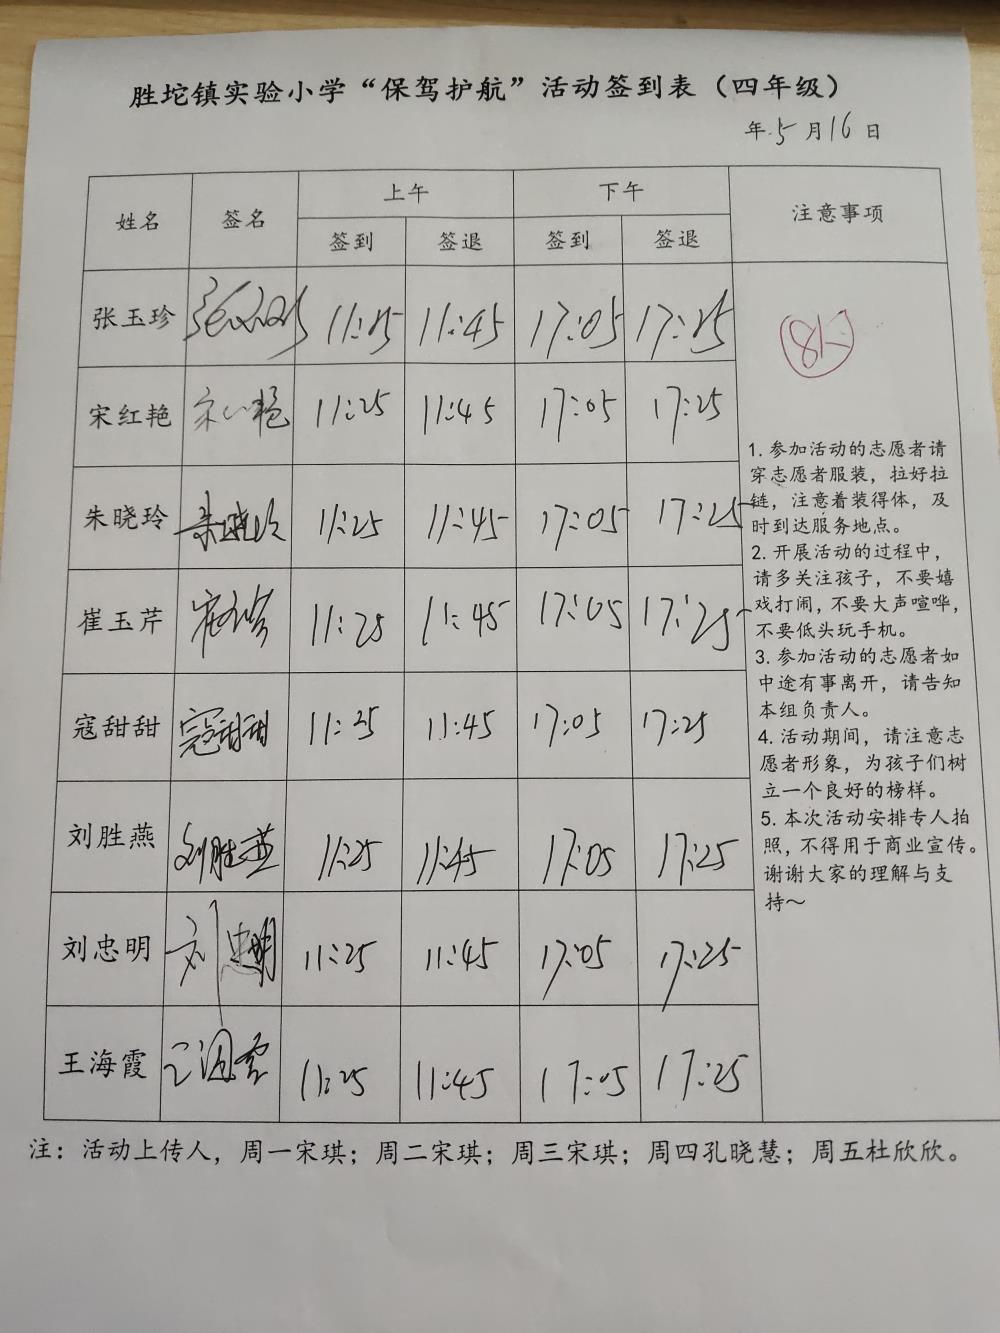 胜坨镇实验小学“保驾护航”活动签到表（四年级）
年 5 月 16 日
姓名 签名 上午 下午 注意事项
签到 签退 签到 签退
张玉珍 11:25 11:45 17:05 17:25
宋红艳 宋红艳 11:25 11:45 17:05 17:25
朱晓玲 朱晓玲 11:25 11:45 17:05 17:25
崔玉芹 崔玉芹 11:25 11:45 17:05 17:25
寇甜甜 寇甜甜 11:25 11:45 17:05 17:25
刘胜燕 刘胜燕 11:25 11:45 17:05 17:25
刘忠明 刘忠明 11:25 11:45 17:05 17:25
王海霞 王海霞 11:25 11:45 17:05 17:25
1. 参加活动的志愿者请
穿志愿者服装，拉好拉
链，注意着装得体，及
时到达服务地点。
2. 开展活动的过程中，
请多关注孩子，不要嬉
戏打闹，不要大声喧哗，
不要低头玩手机。
3. 参加活动的志愿者如
中途有事离开，请告知
本组负责人。
4. 活动期间，请注意志
愿者形象，为孩子们树
立一个良好的榜样。
5. 本次活动安排专人拍
照，不得用于商业宣传。
谢谢大家的理解与支
持～
注：活动上传人，周一宋琪；周二宋琪；周三宋琪；周四孔晓慧；周五杜欣欣。